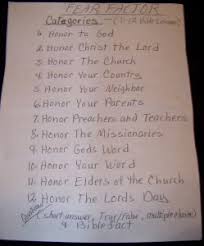 FEAR FACTOR
Categories - (1-12 Bible Lessons)
1. Honor to God
2. Honor Christ the Lord
3. Honor The Church
4. Honor Your Country
5. Honor Your Neighbor
6. Honor Your Parents
7. Honor Preachers and Teachers
8. Honor The Missionaries
9. Honor Gods Word
10. Honor Your Word
11. Honor Elders of the Church
12. Honor The Lords Day
(short answer, True/False, multiple choice)
& Bible fact